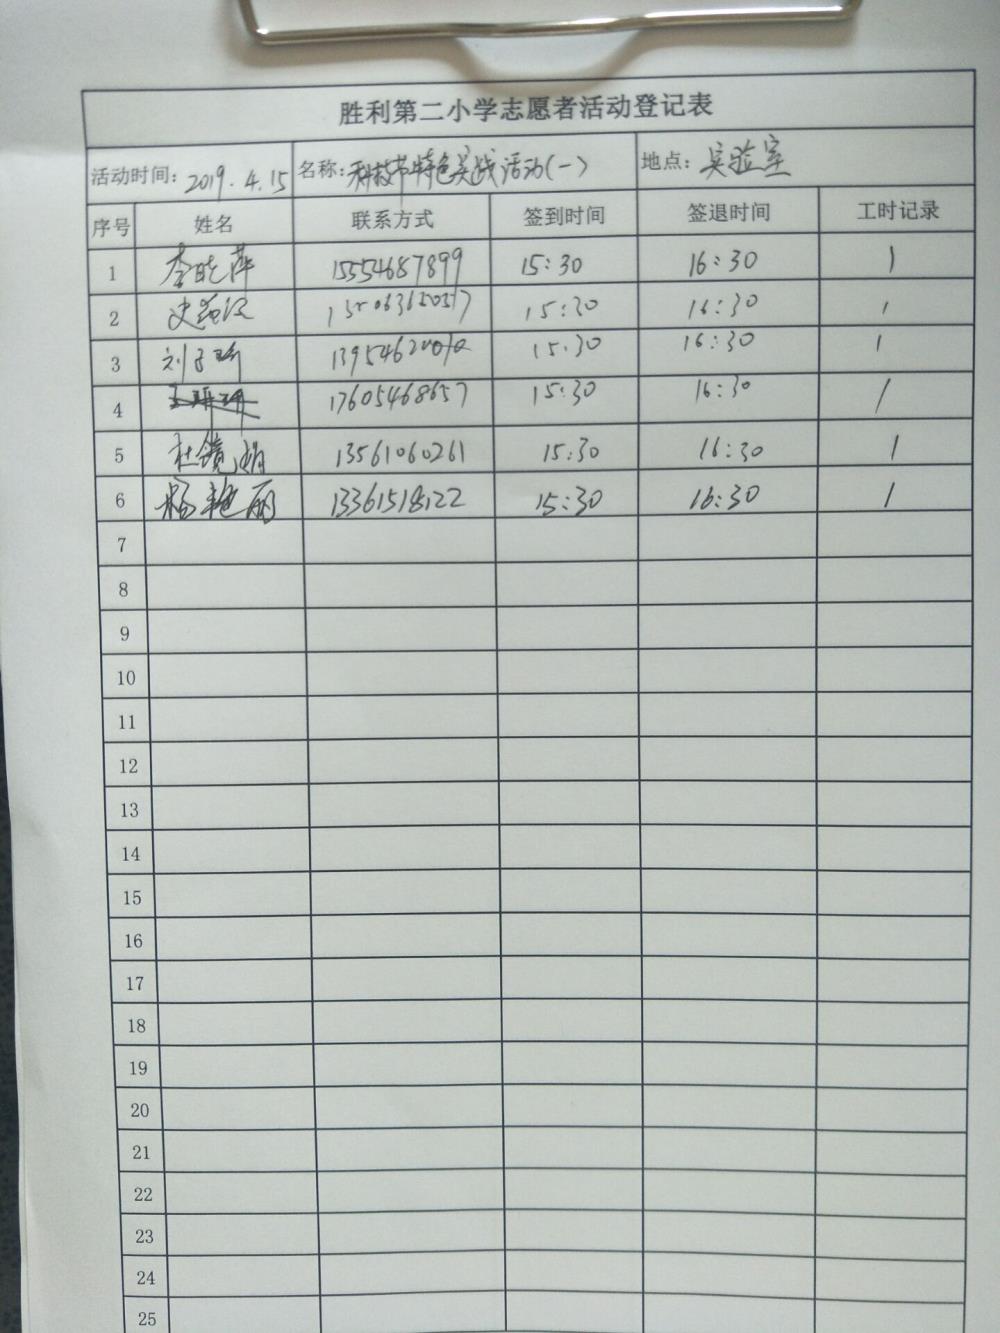 胜利第二小学志愿者活动登记表
活动时间：2019.4.15 名称：科技节特色实战活动(一) 地点：实验室
序号 姓名 联系方式 签到时间 签退时间 工时记录
1 李晓萍 15554687899 15:30 16:30 1
2 15:30 16:30 1
3 15:30 16:30 1
4 17605468657 15:30 16:30 1
5 杜镜娟 13561060261 15:30 16:30 1
6 杨艳丽 13361518122 15:30 16:30 1
7
8
9
10
11
12
13
14
15
16
17
18
19
20
21
22
23
24
25